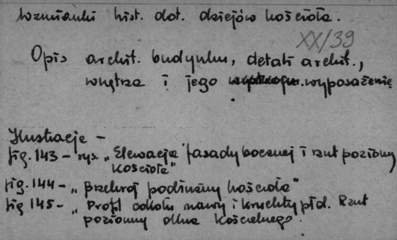 Wzmianki hist. dot. dziejów kościoła.
XX/39
Opis archit. budynku, detali archit.,
wnętrza i jego wyposażenie
Ilustracje -
fig. 143 - rys. „Elewacja fasady bocznej i rzut poziomy
Kościoła”
fig. 144 - „Przekrój podłużny kościoła”
fig 145 - „Profil cokołu nawy i kruchty płd. Rzut
poziomy okna Kościelnego.